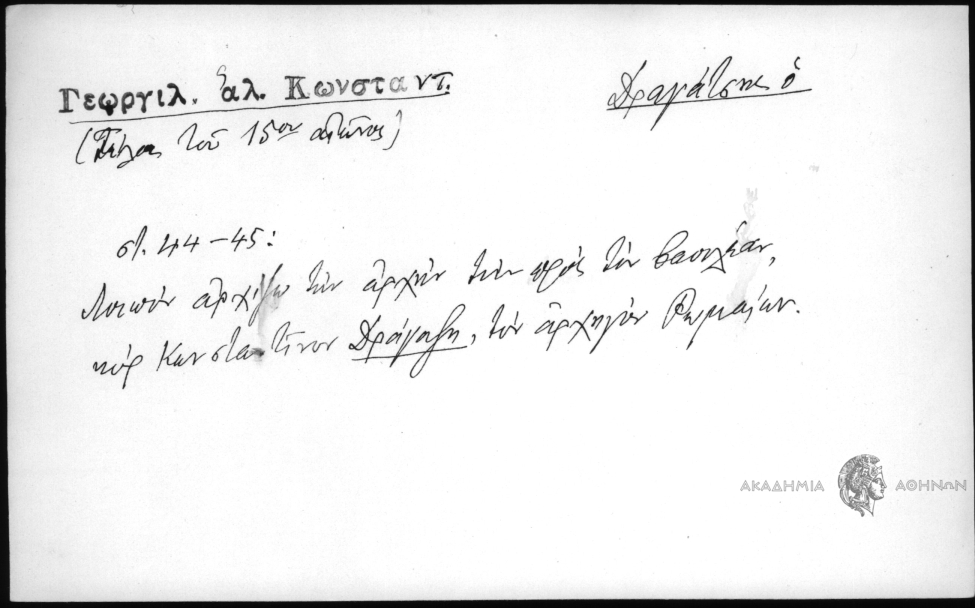 Γεωργιλ. ἁλ. Κωνσταντ.
Δραγάτσης ὁ
(Τέλος τοῦ 15ου αἰῶνος)
στ. 44-45:
Λοιπὸν ἀρχίζω τὴν ἀρχὴν τὴν πρὸς τὸν βασιλέαν,
κύρ Κωνσταντῖνον Δράγαζη, τὸν ἀρχηγὸν Ρωμαίων.
ΑΚΑΔΗΜΙΑ ΑΘΗΝΩΝ